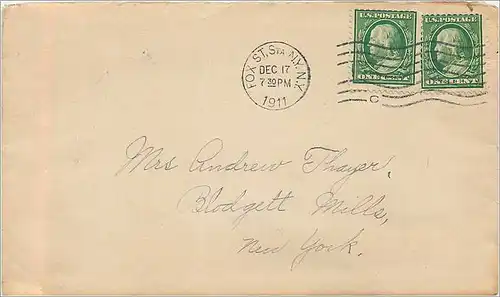 U.S. POSTAGE U.S. POSTAGE
FOX ST, STA. N.Y., N.Y.
DEC 17
7 30 PM
1911
ONE CENT ONE CENT
C
Mrs Andrew Thayer,
Blodgett Mills,
New York.